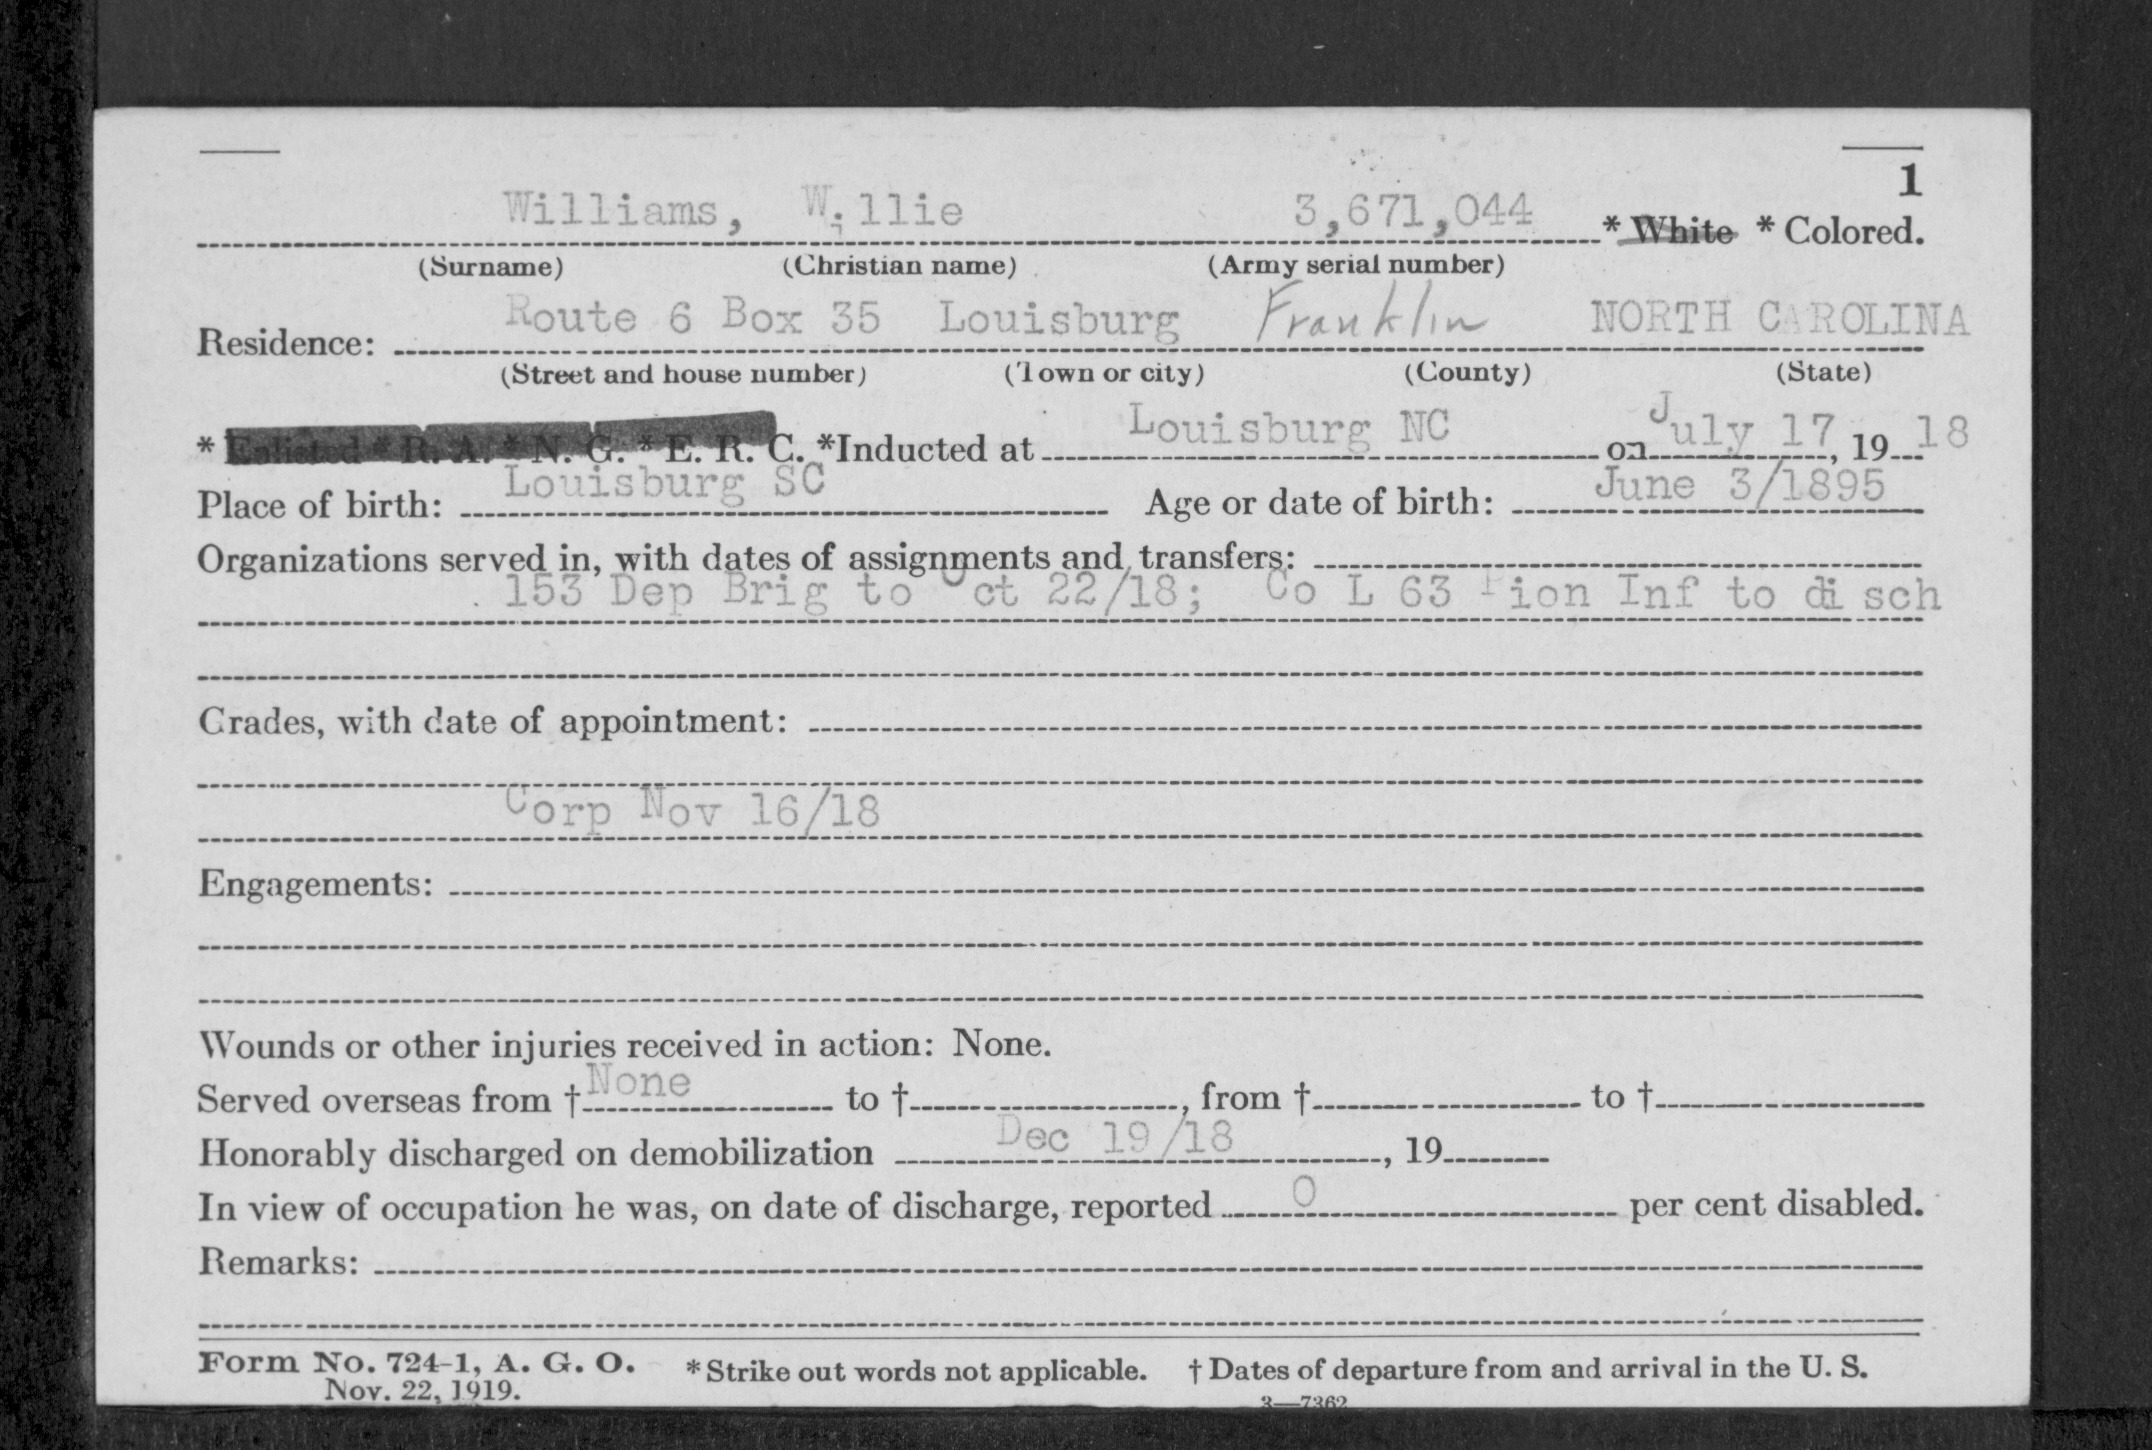 1
Williams, Willie 3,671,044 * White * Colored.
(Surname) (Christian name) (Army serial number)
Residence: Route 6 Box 35 Louisburg Franklin NORTH CAROLINA
(Street and house number) (Town or city) (County) (State)
* Enlisted * R. A. * N. G. * E. R. C. *Inducted at Louisburg NC on July 17, 19 18
Place of birth: Louisburg SC Age or date of birth: June 3/1895
Organizations served in, with dates of assignments and transfers:
153 Dep Brig to Oct 22/18; Co L 63 Pion Inf to di sch
Grades, with date of appointment:
Corp Nov 16/18
Engagements:
Wounds or other injuries received in action: None.
Served overseas from † None to †, from † to †
Honorably discharged on demobilization Dec 19/18, 19
In view of occupation he was, on date of discharge, reported 0 per cent disabled.
Remarks:
Form No. 724-1, A. G. O. * Strike out words not applicable. † Dates of departure from and arrival in the U. S.
Nov. 22, 1919. 3—7362